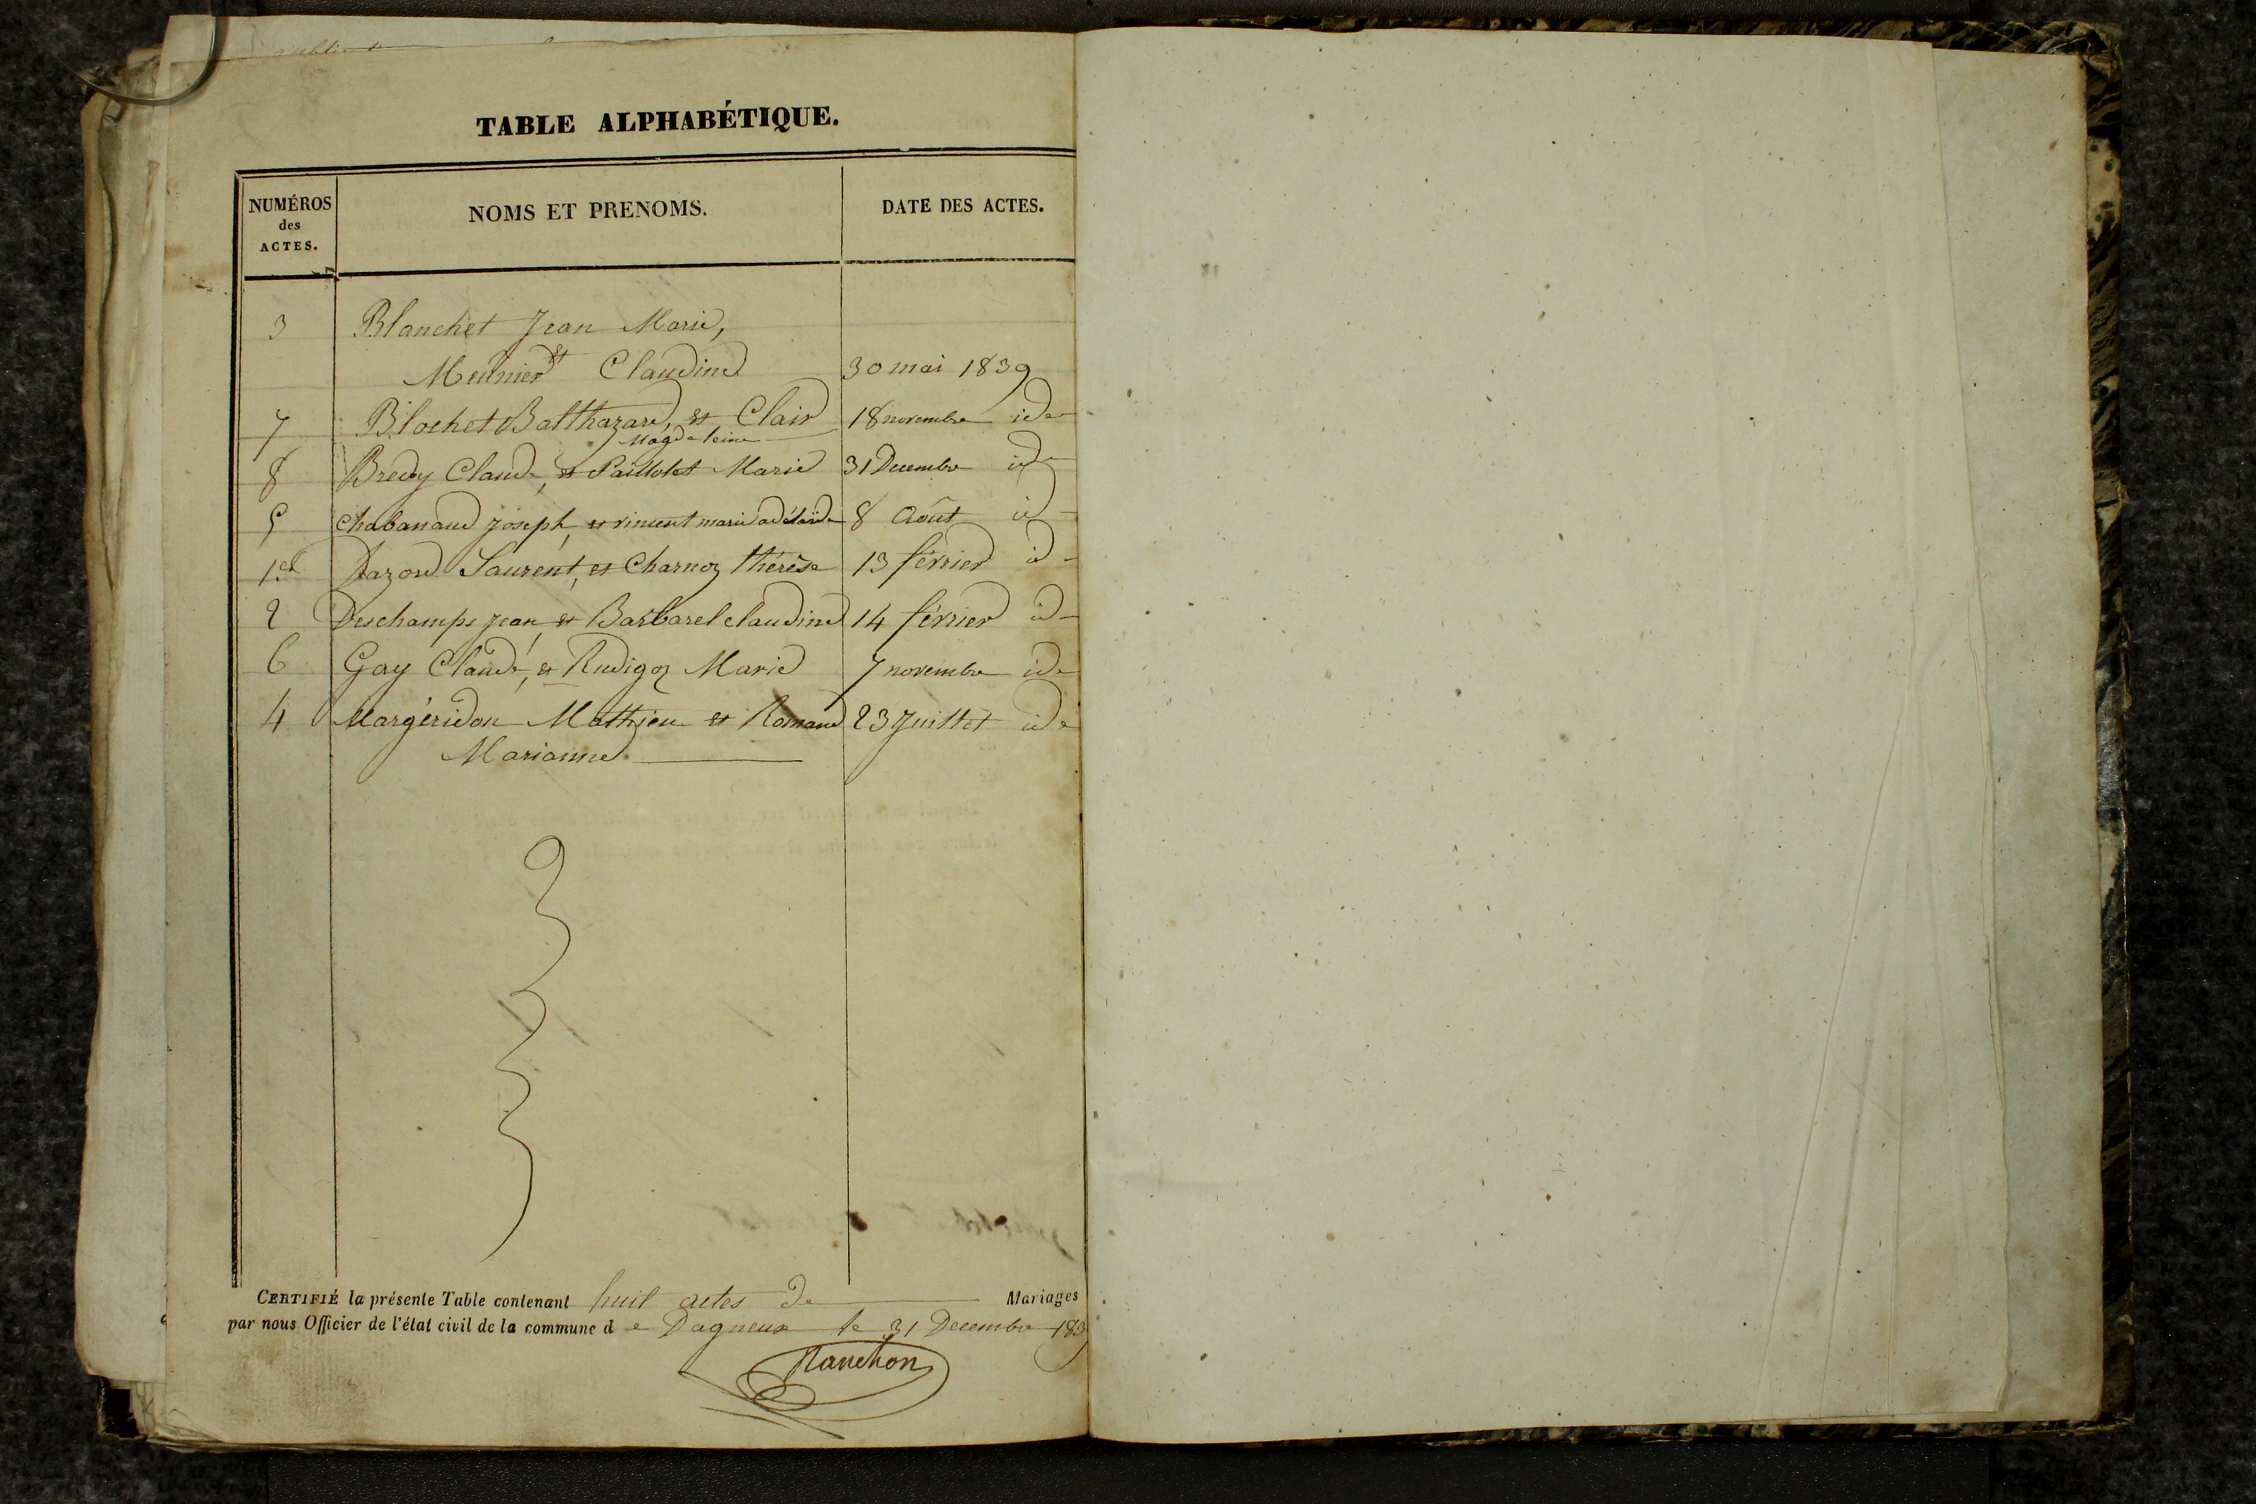 TABLE ALPHABÉTIQUE.
NUMÉROS des ACTES. NOMS ET PRENOMS. DATE DES ACTES.
3 Blanchet Jean Marie,
et
Meunier Claudine 30 mai 1839
7 Blochet Balthazard, et Clair 18 novembre id
Magdeleine
8 Bredy Claude, et Paillolet Marie 31 Decembre id
5 Chabanaud Joseph, et vincent marie adélaïde 8 Août id
1er Dazord Laurent, et Charnoz thérèse 13 février id
2 Deschamps Jean, et Barbarel claudine 14 février id
6 Gay Claude, et Rudigoz Marie 7 novembre id
4 Margéridon Mathieu et Romand 23 Juillet id
Marianne
CERTIFIÉ la présente Table contenant huit actes de Mariages
par nous Officier de l'état civil de la commune de Dagneux le 31 Decembre 1839